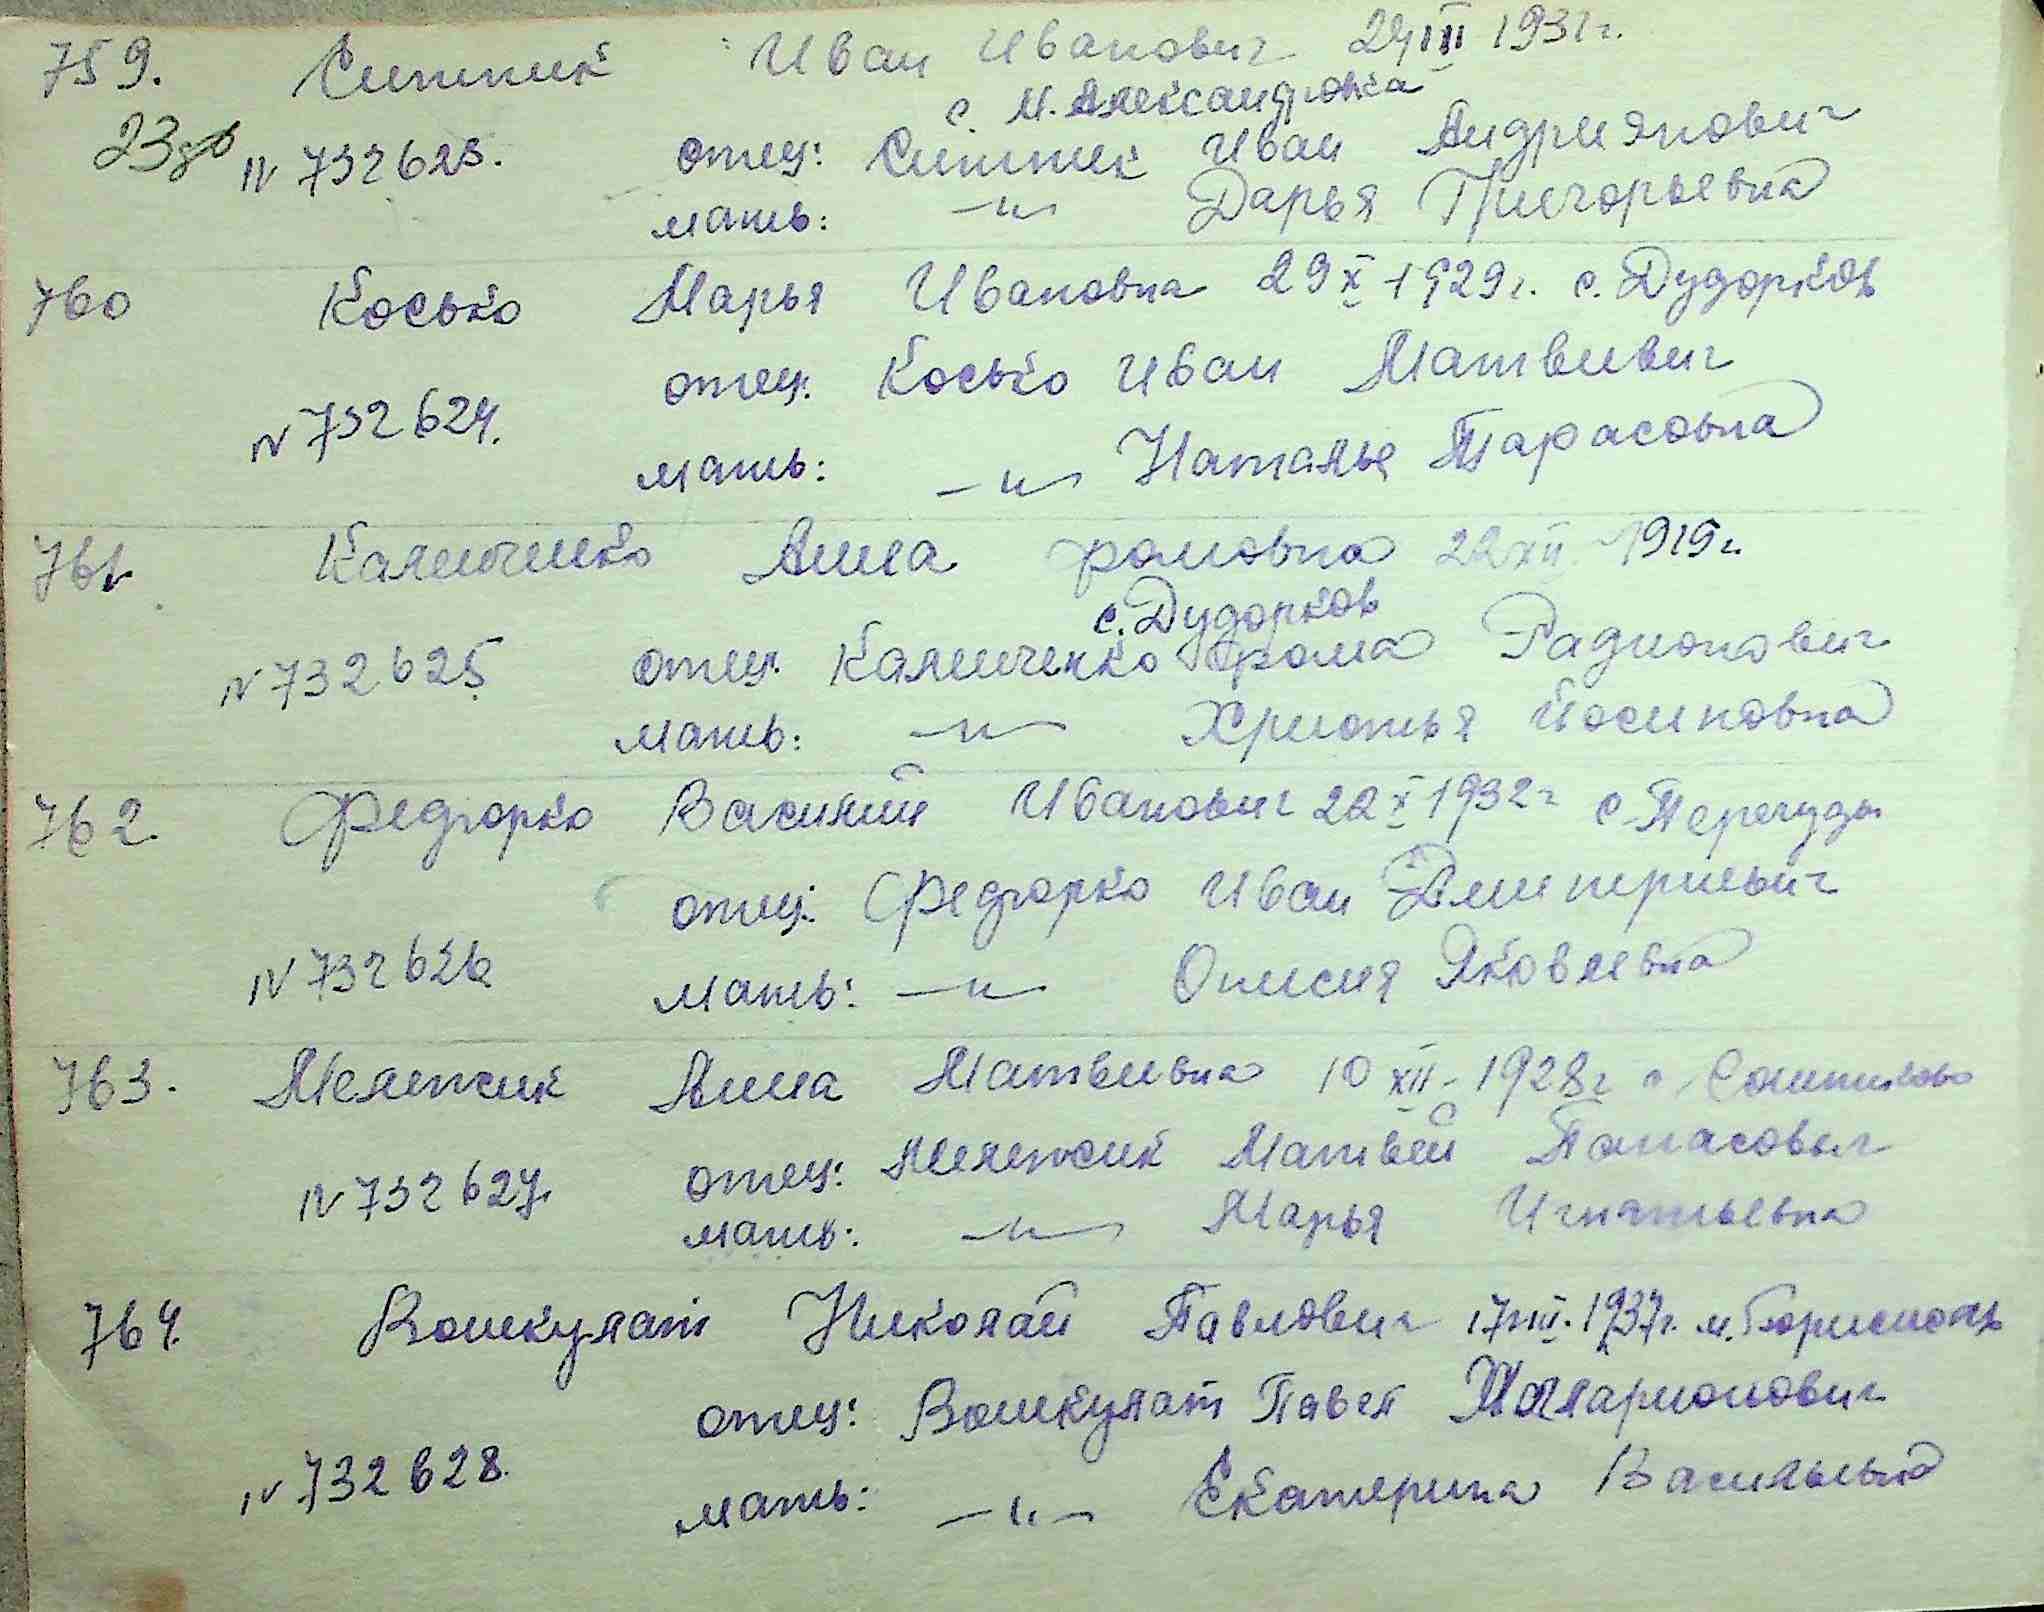 759. Ситник Иван Иванович 24 III 1931 г.
с. М. Александровка
23 N 732623. отец: Ситник Иван Андриянович
мать: —"— Дарья Григорьевна
760 Косько Марья Ивановна 29 X 1929 г. с. Дудорков
отец: Косько Иван Матвиевич
N 732624.
мать: —"— Наталья Тарасовна
761. Калениченко Анна Фомовна 22 XII 1919 г.
с. Дудорков
N 732625 отец: Калениченко Фома Радионович
мать: —"— Христья Йосиповна
762. Федорко Василий Иванович 22 X 1932 г с Перегуды
отец: Федорко Иван Дмитриевич
N 732626 мать: —"— Онисия Яковлевна
763. Мелетсик Анна Матвиевна 10 XII - 1928 г с.
N 732627. отец: Мелетсик Матвей Панасович
мать: —"— Марья Игнатьевна
764. Вошкулат Николай Павлович 17 III. 1937 г. м. Борисполь
отец: Вошкулат Павел Илларионович
N 732628. мать: —"— Екатерина Васильевна